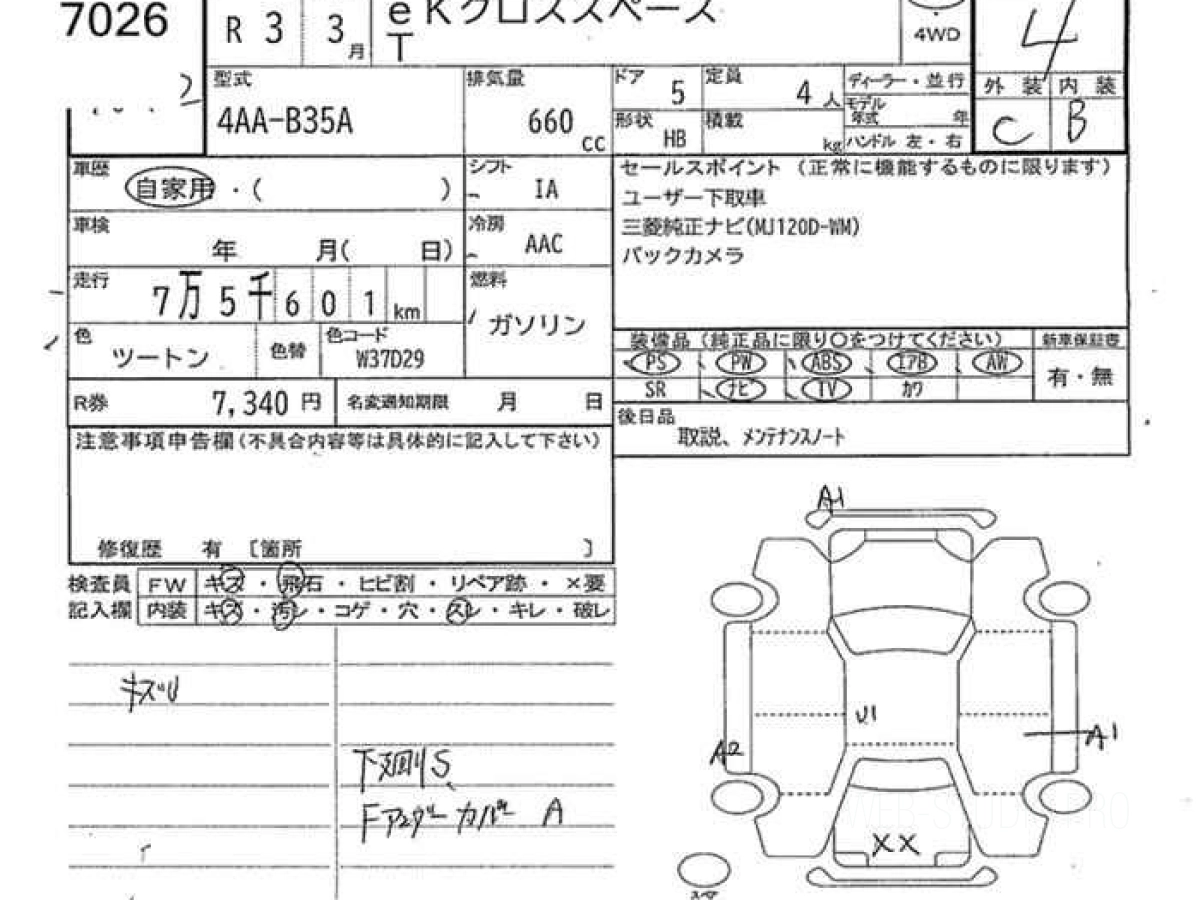 7026
R 3 3月
eKクロススペース
T
4WD
4
外装 内装
C B
型式
4AA-B35A
排気量
660 cc
ドア 5
定員 4人
形状 HB
積載 kg
ディーラー・並行
モデル年式 年
ハンドル 左・右
車歴
自家用・( )
シフト
IA
車検
年 月( 日)
冷房
AAC
走行
7万5千601km
燃料
ガソリン
色
ツートン
色替
色コード
W37D29
R券 7,340円
名変通知期限 月 日
セールスポイント (正常に機能するものに限ります)
ユーザー下取車
三菱純正ナビ(MJ120D-WM)
バックカメラ
装備品(純正品に限り○をつけてください)
PS PW ABS エアB AW
SR ナビ TV カワ
新車保証書
有・無
後日品
取説、メンテナンスノート
注意事項申告欄(不具合内容等は具体的に記入して下さい)
修復歴 有 〔箇所 〕
検査員 FW キズ・飛石・ヒビ割・リペア跡・×要
記入欄 内装 キズ・汚レ・コゲ・穴・スレ・キレ・破レ
キズU
下廻りS、
Fアンダーカバー A
A1
U1
A2
A1
XX
スペア
WEB-STUDIO.PRO